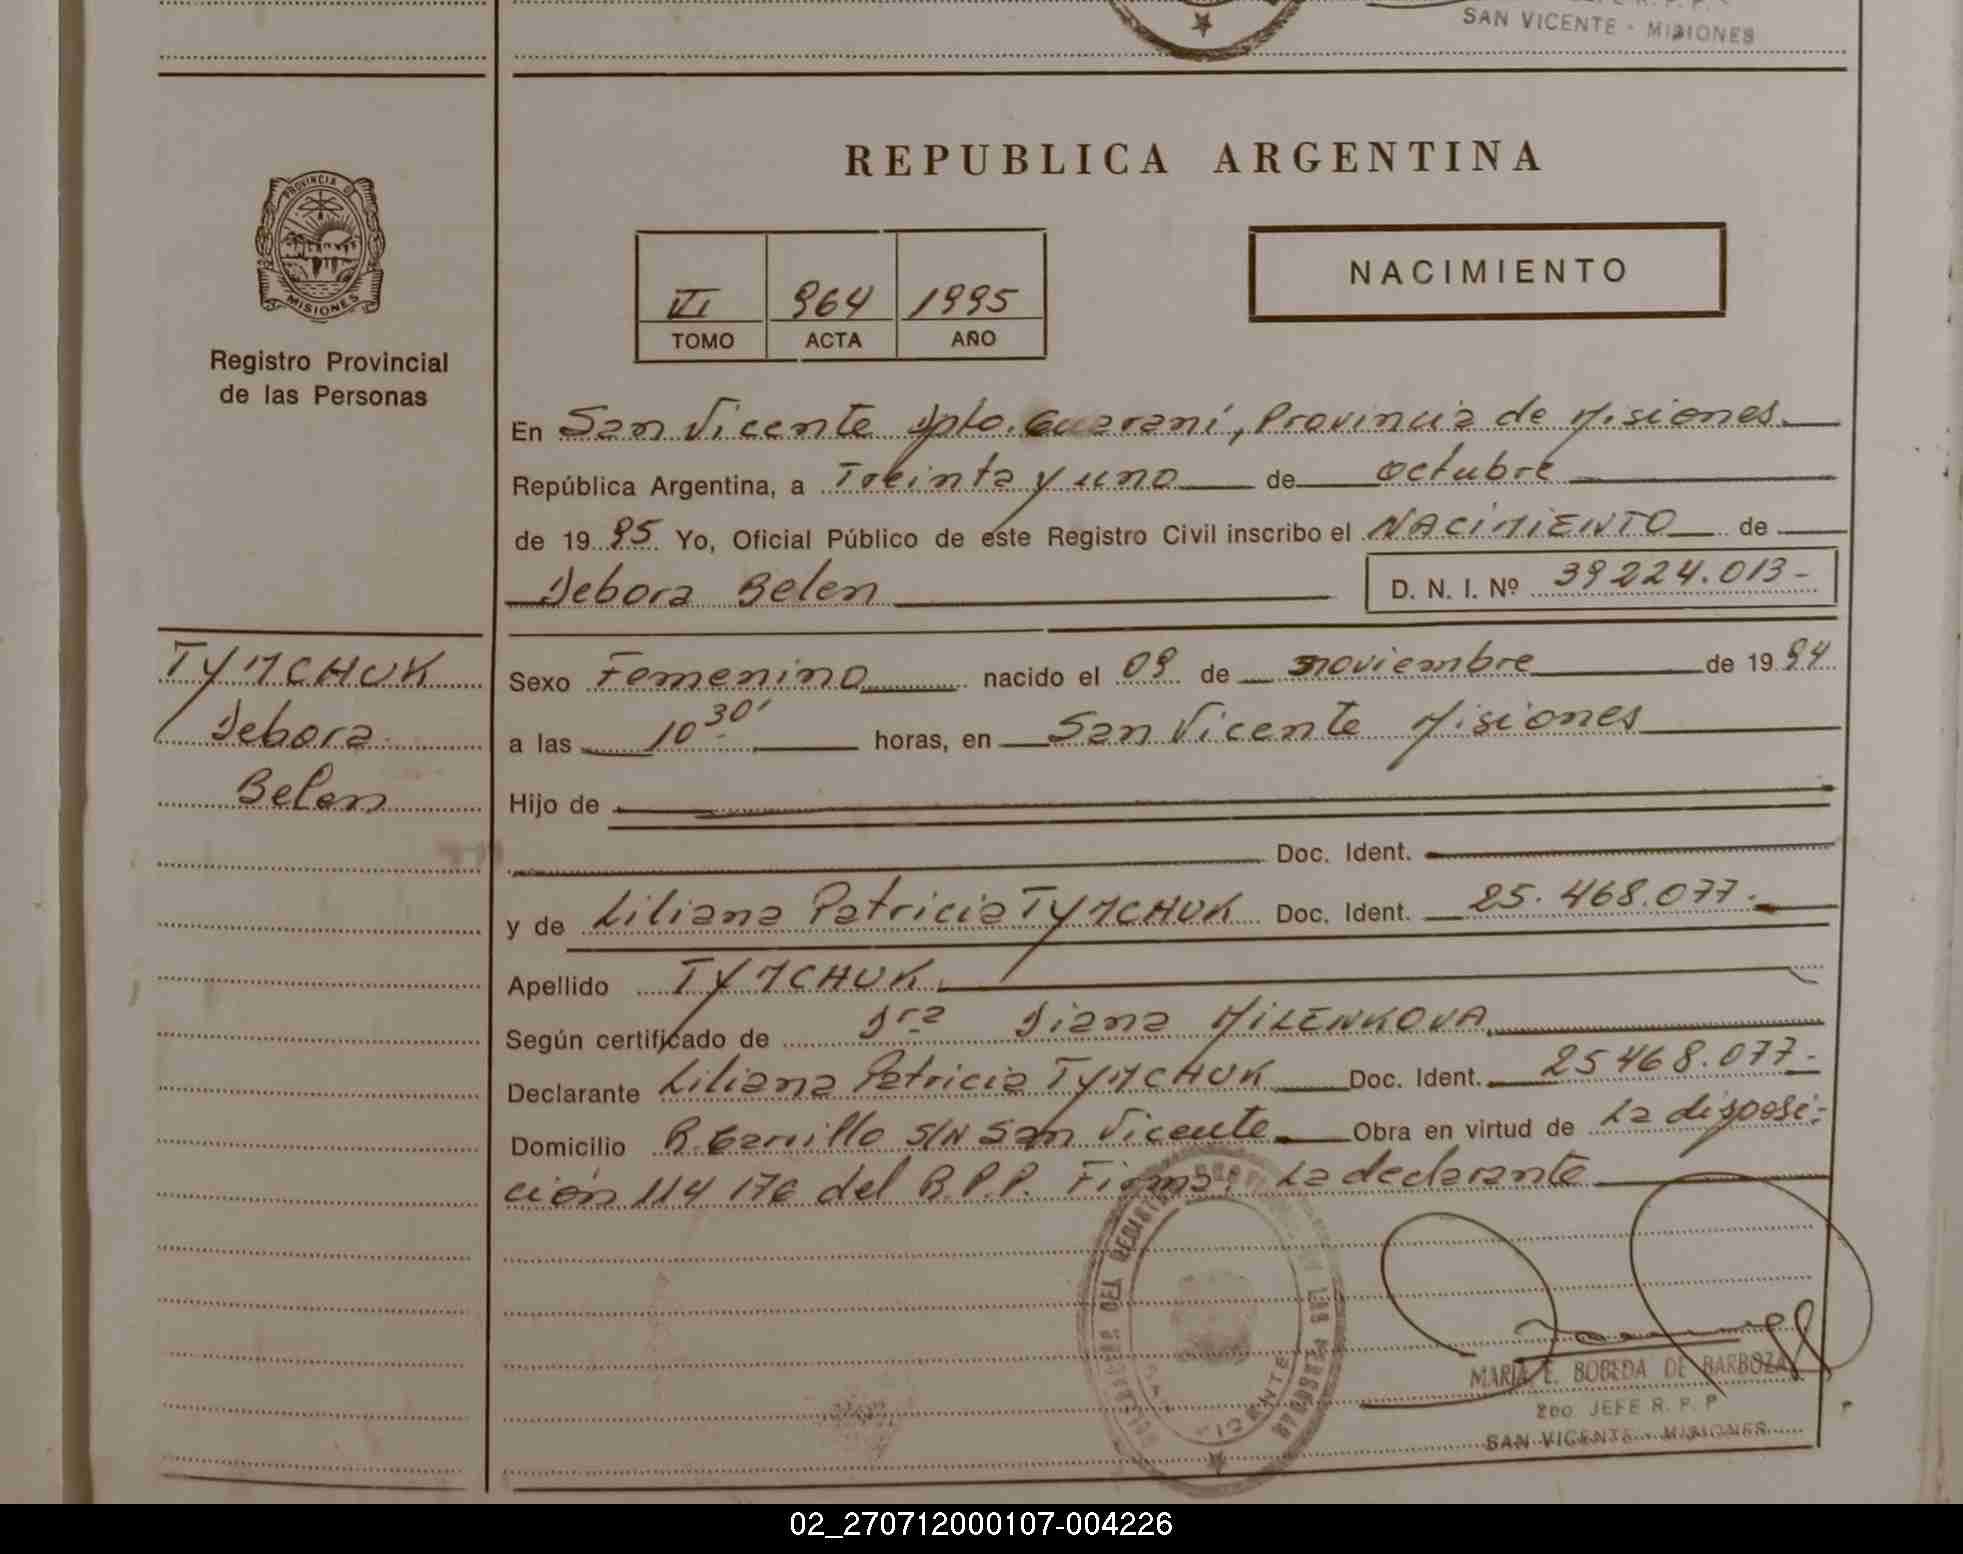 SAN VICENTE - MISIONES
PROVINCIA DE
MISIONES
Registro Provincial
de las Personas
REPUBLICA ARGENTINA
VI 964 1995
TOMO ACTA AÑO
NACIMIENTO
En San Vicente Dpto. Guaraní, Provincia de Misiones.
República Argentina, a Treinta y uno de octubre
de 1995 Yo, Oficial Público de este Registro Civil inscribo el NACIMIENTO de
Debora Belen D. N. I. Nº 39224.013-
TYMCHUK
Debora
Belen
Sexo Femenino nacido el 09 de noviembre de 1994
a las 10 30' horas, en San Vicente Misiones
Hijo de
Doc. Ident.
y de Liliana Patricia TYMCHUK Doc. Ident. 25.468.077.
Apellido TYMCHUK
Según certificado de Dra Diana MILENKOVA
Declarante Liliana Patricia TYMCHUK Doc. Ident. 25468.077-
Domicilio R. Carrillo S/N San Vicente Obra en virtud de La disposi-
ción 114 176 del R.P.P. Firma: La declarante
MARIA E. BOBEDA DE BARBOZA
2do JEFE R. P. P
SAN VICENTE - MISIONES
02_270712000107-004226